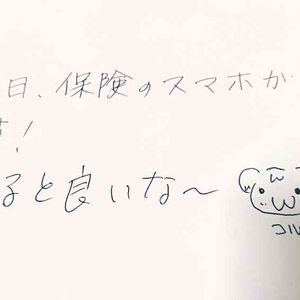 日、保険のスマホが
す!
ると良いな〜
コル